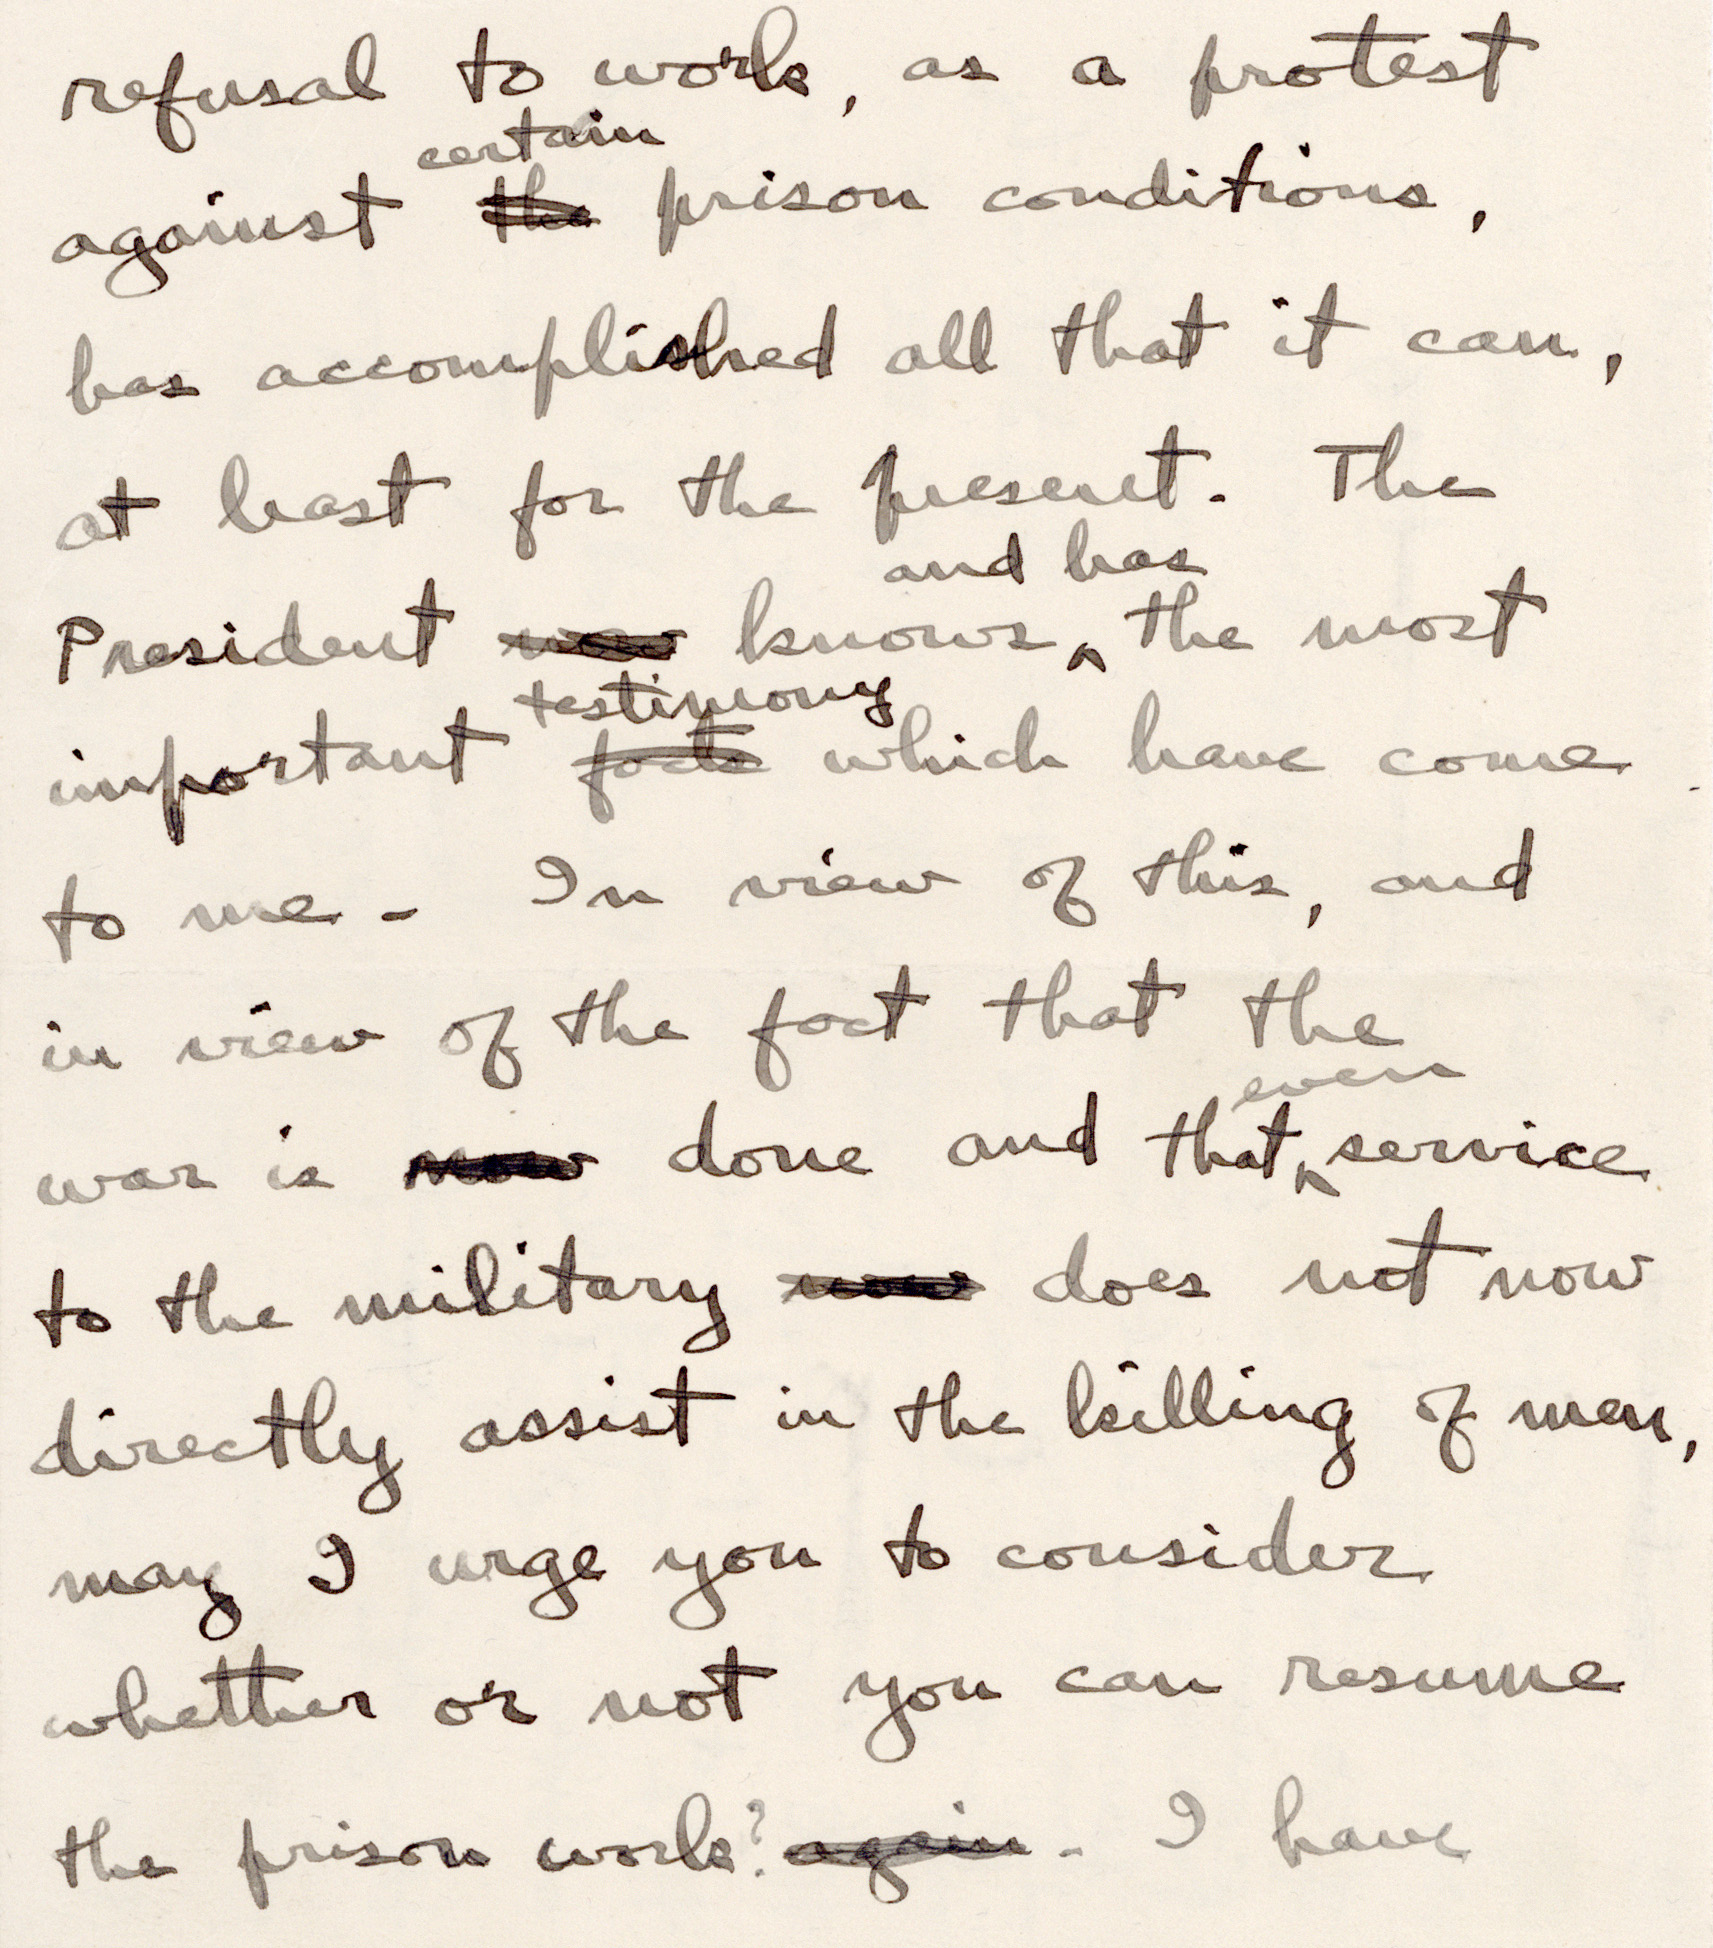 refusal to work, as a protest
certain
against the prison conditions,
has accomplished all that it can,
at least for the present. The
and has
President now knows ^ the most
testimony
important facts which have come
to me - In view of this, and
in view of the fact that the
even
war is now done and that ^ service
to the military now does not now
directly assist in the killing of men,
may I urge you to consider
whether or not you can resume
the prison work? again - I have